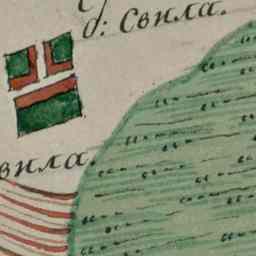 д: Свила.
вила.